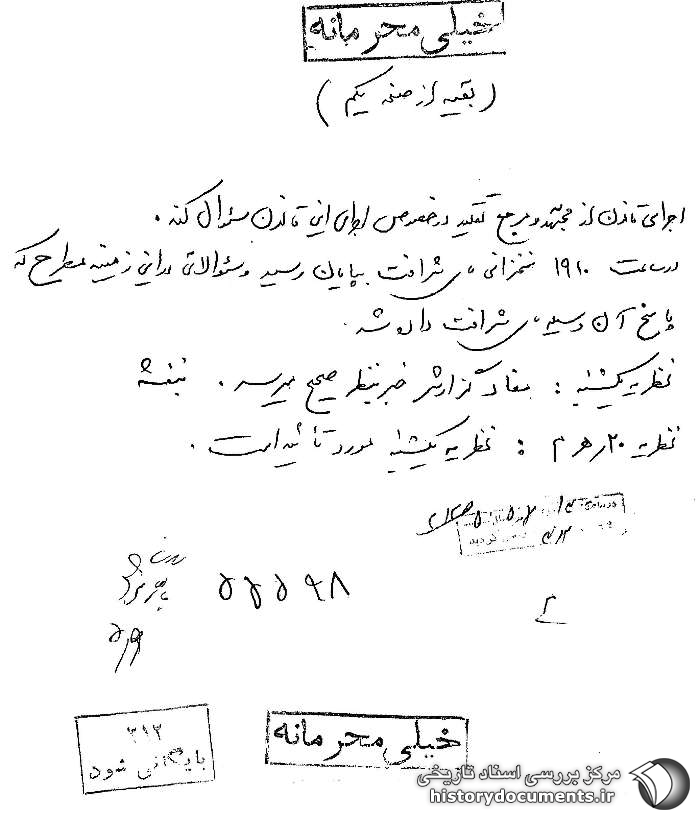 خیلی محرمانه
(بقیه از صفحه یکم)
اجرای قانون از مجتهد و مرجع تقلید در خصوص اجرای این قانون سئوال کند.
در ساعت ۱۹۱۰ سخنرانی شرافت بپایان رسید و سئوالاتی در این زمینه مطرح که
پاسخ آن وسیله شرافت داده شد.
نظریه یکشنبه : مفاد گزارش خبر بنظر صحیح میرسد. بنفشه
نظریه ۲۰ ه م : نظریه یکشنبه مورد تائید است.
۵۵۵۹۸
۳۱۲
بایگانی شود
خیلی محرمانه
مرکز بررسی اسناد تاریخی
historydocuments.ir